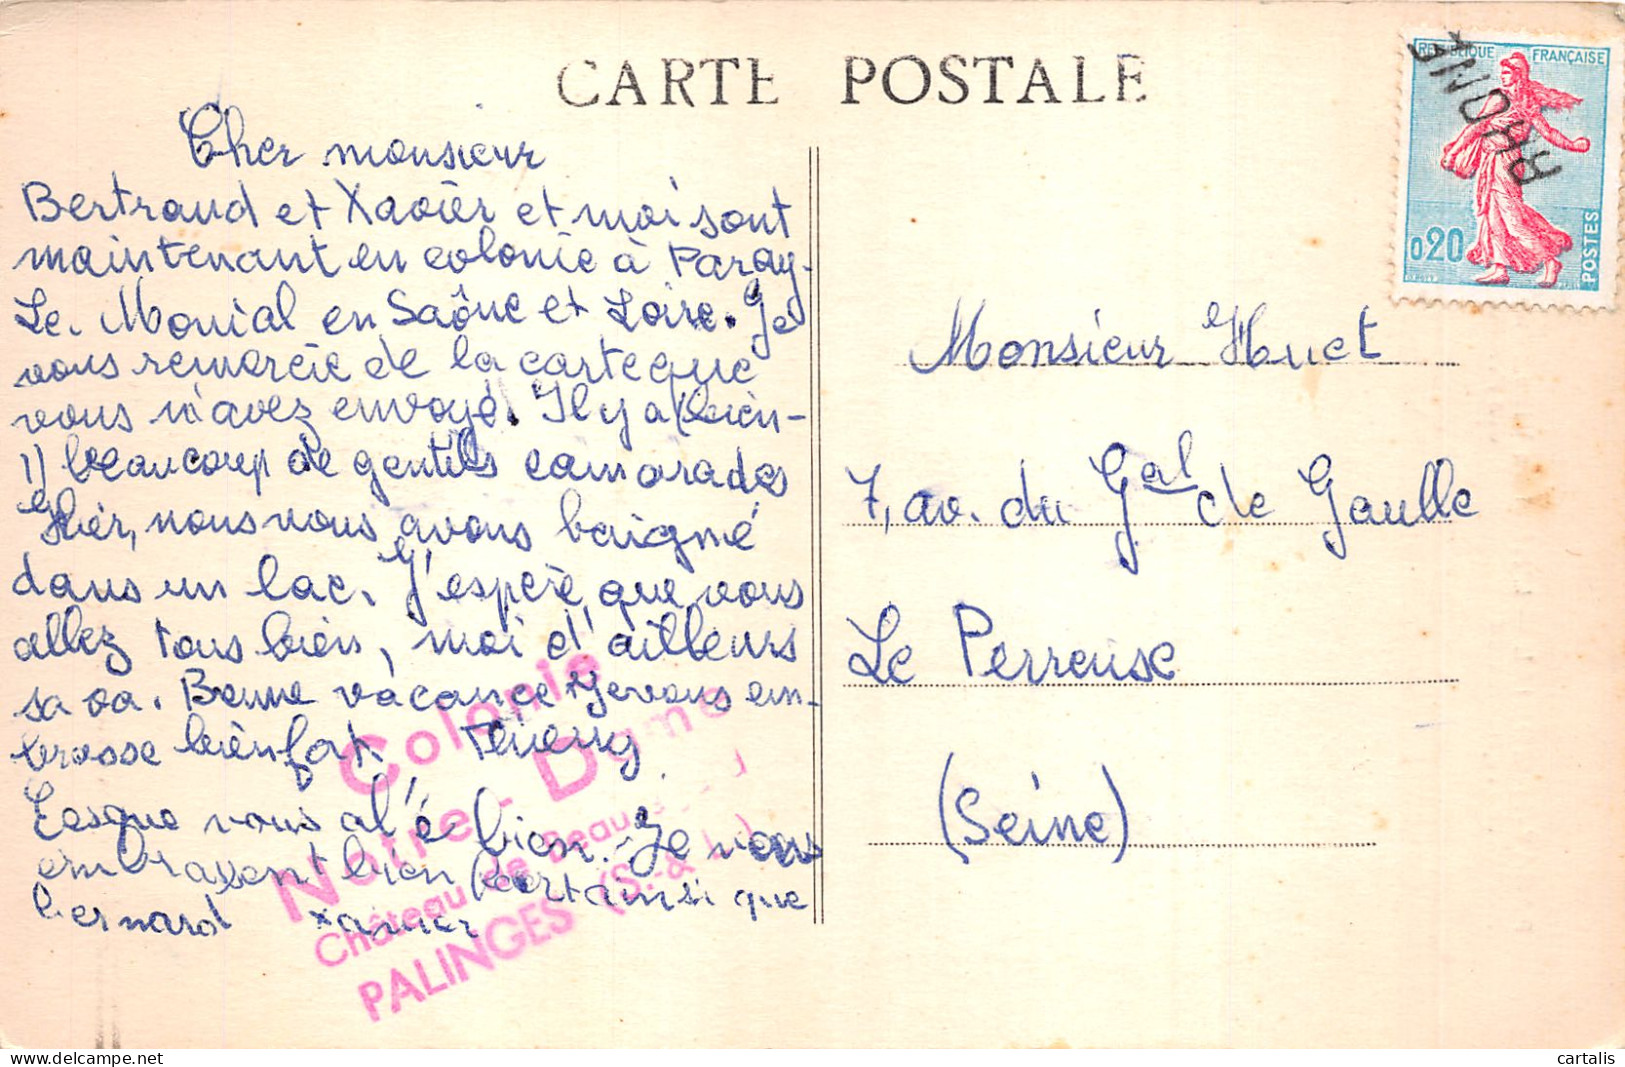 CARTE POSTALE
RÉPUBLIQUE FRANÇAISE
RHONE
0,20
POSTES
Cher monsieur
Bertrand et Xavièr et moi sont
maintenant en colonie à Paray-
Le-Monial en Saône et Loire. Je
vous remercie de la carte que
vous m'avez envoyé. Il y a bien-
1) beaucoup de gentils camarades
Hièr, nous nous avons baigné
dans un lac. J'espère que vous
allez tous bien, moi d'ailleurs
sa va. Bonne vacance. Je vous em-
brasse bien fort. Thierry
Eesque vous al'é bien. Je vous
embrassent bien fort ainsi que
bernard xavier
Colonie
Notre-Dame
Château de
PALINGES (S.-&-L.)
Monsieur Huet
7, av. du Gal de Gaulle
Le Perreuse
(Seine)
cartalis